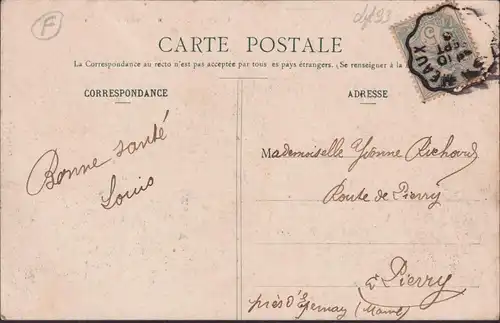 F
CARTE POSTALE
La Correspondance au recto n'est pas acceptée par tous les pays étrangers. (Se renseigner à la
CORRESPONDANCE
ADRESSE
EAUX
10
SEPT
Bonne santé
Louis
Mademoiselle Yvonne Richard
Route de Pierry
à Pierry
près d'Epernay (Marne)